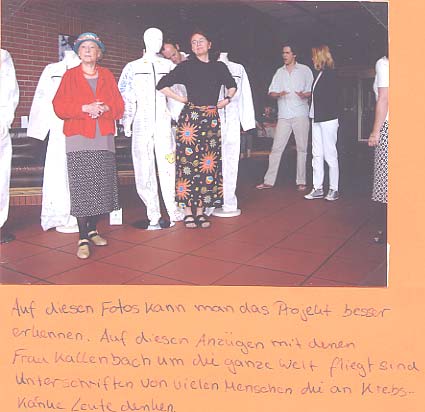 Auf diesen Fotos kann man das Projekt besser
erkennen. Auf diesen Anzügen mit denen
Frau Kallenbach um die ganze Welt fliegt sind
Unterschriften von vielen Menschen die an Krebs-
kranke Leute denken.